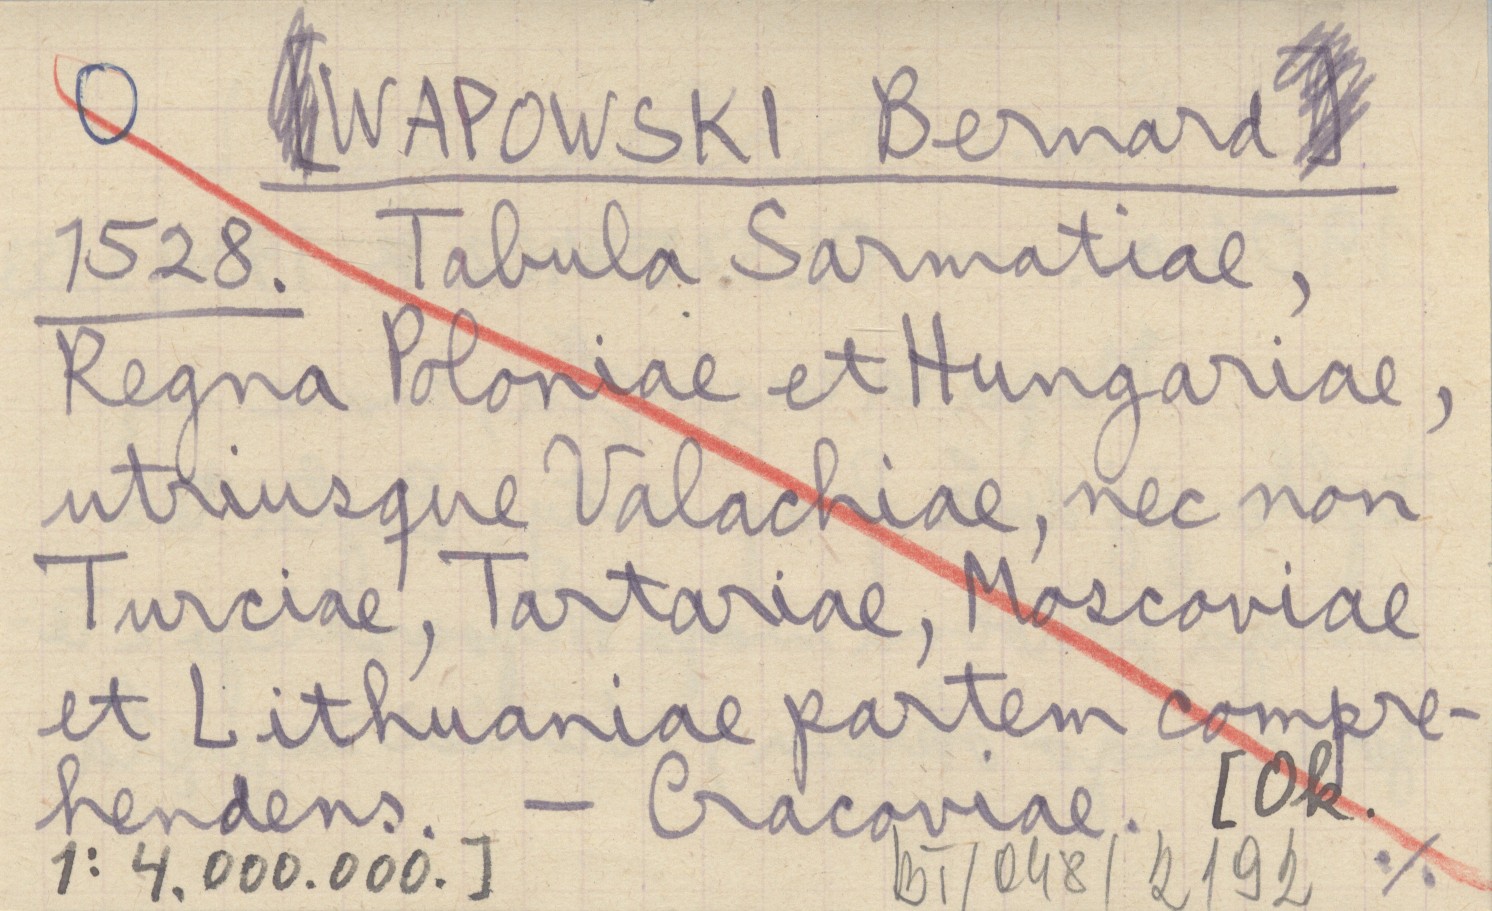 [WAPOWSKI Bernard]
1528. Tabula Sarmatiae,
Regna Poloniae et Hungariae,
utriusque Valachiae, nec non
Turciae, Tartariae, Moscoviae
et Lithuaniae partem compre-
hendens. — Cracoviae. [Ok.
1: 4.000.000.] BI/048/2192 ·/.